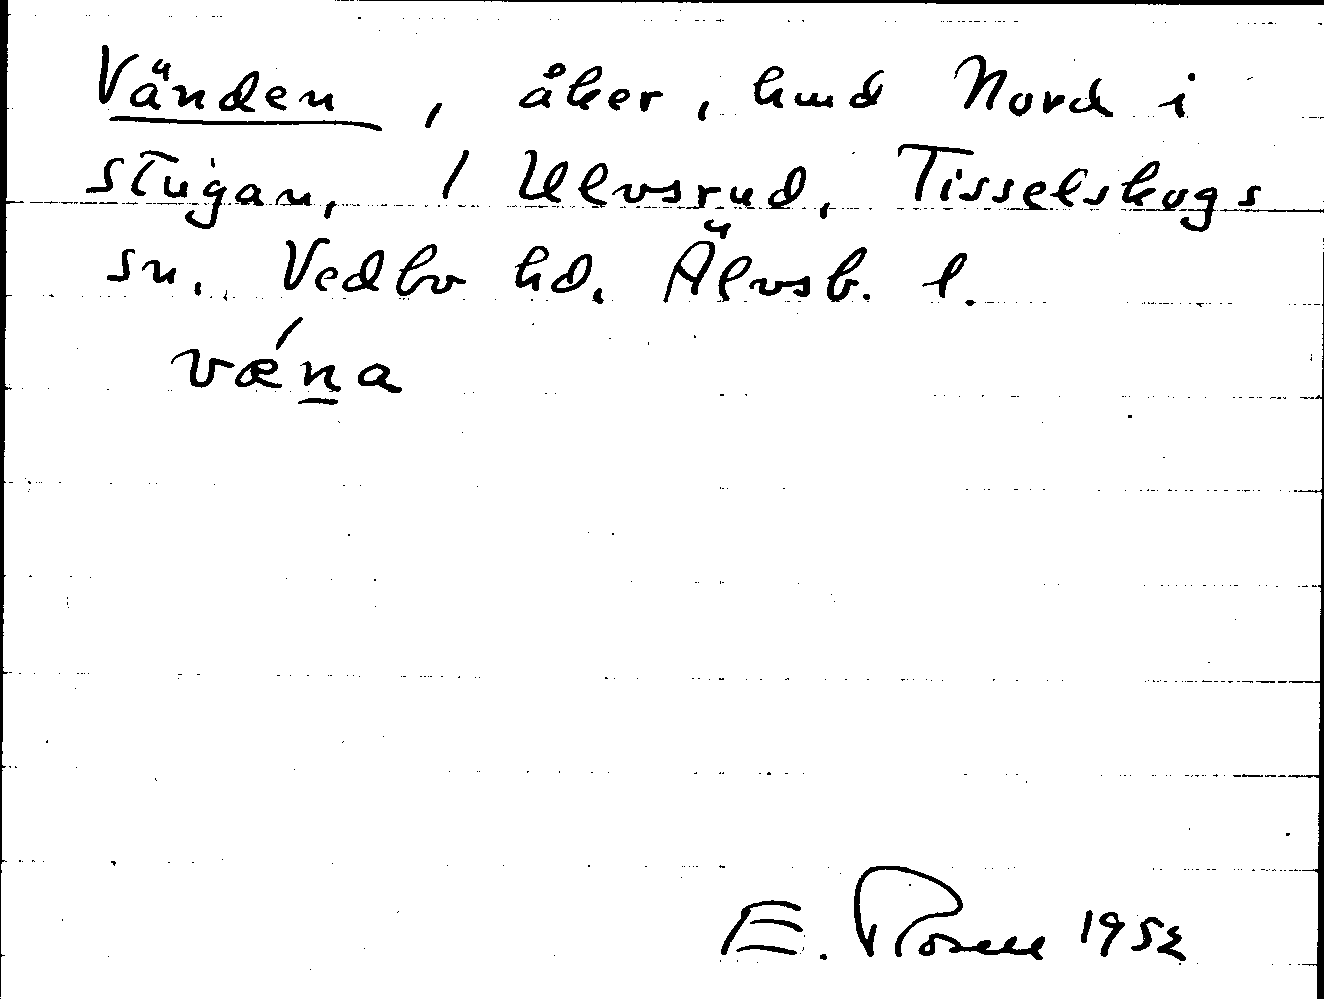 Vänden, åker, hmd Nord i
stugan, 1 Ulvsrud, Tisselskogs
sn. Vedbo hd. Älvsb. l.
vǽn̲a
E. Rosell 1952